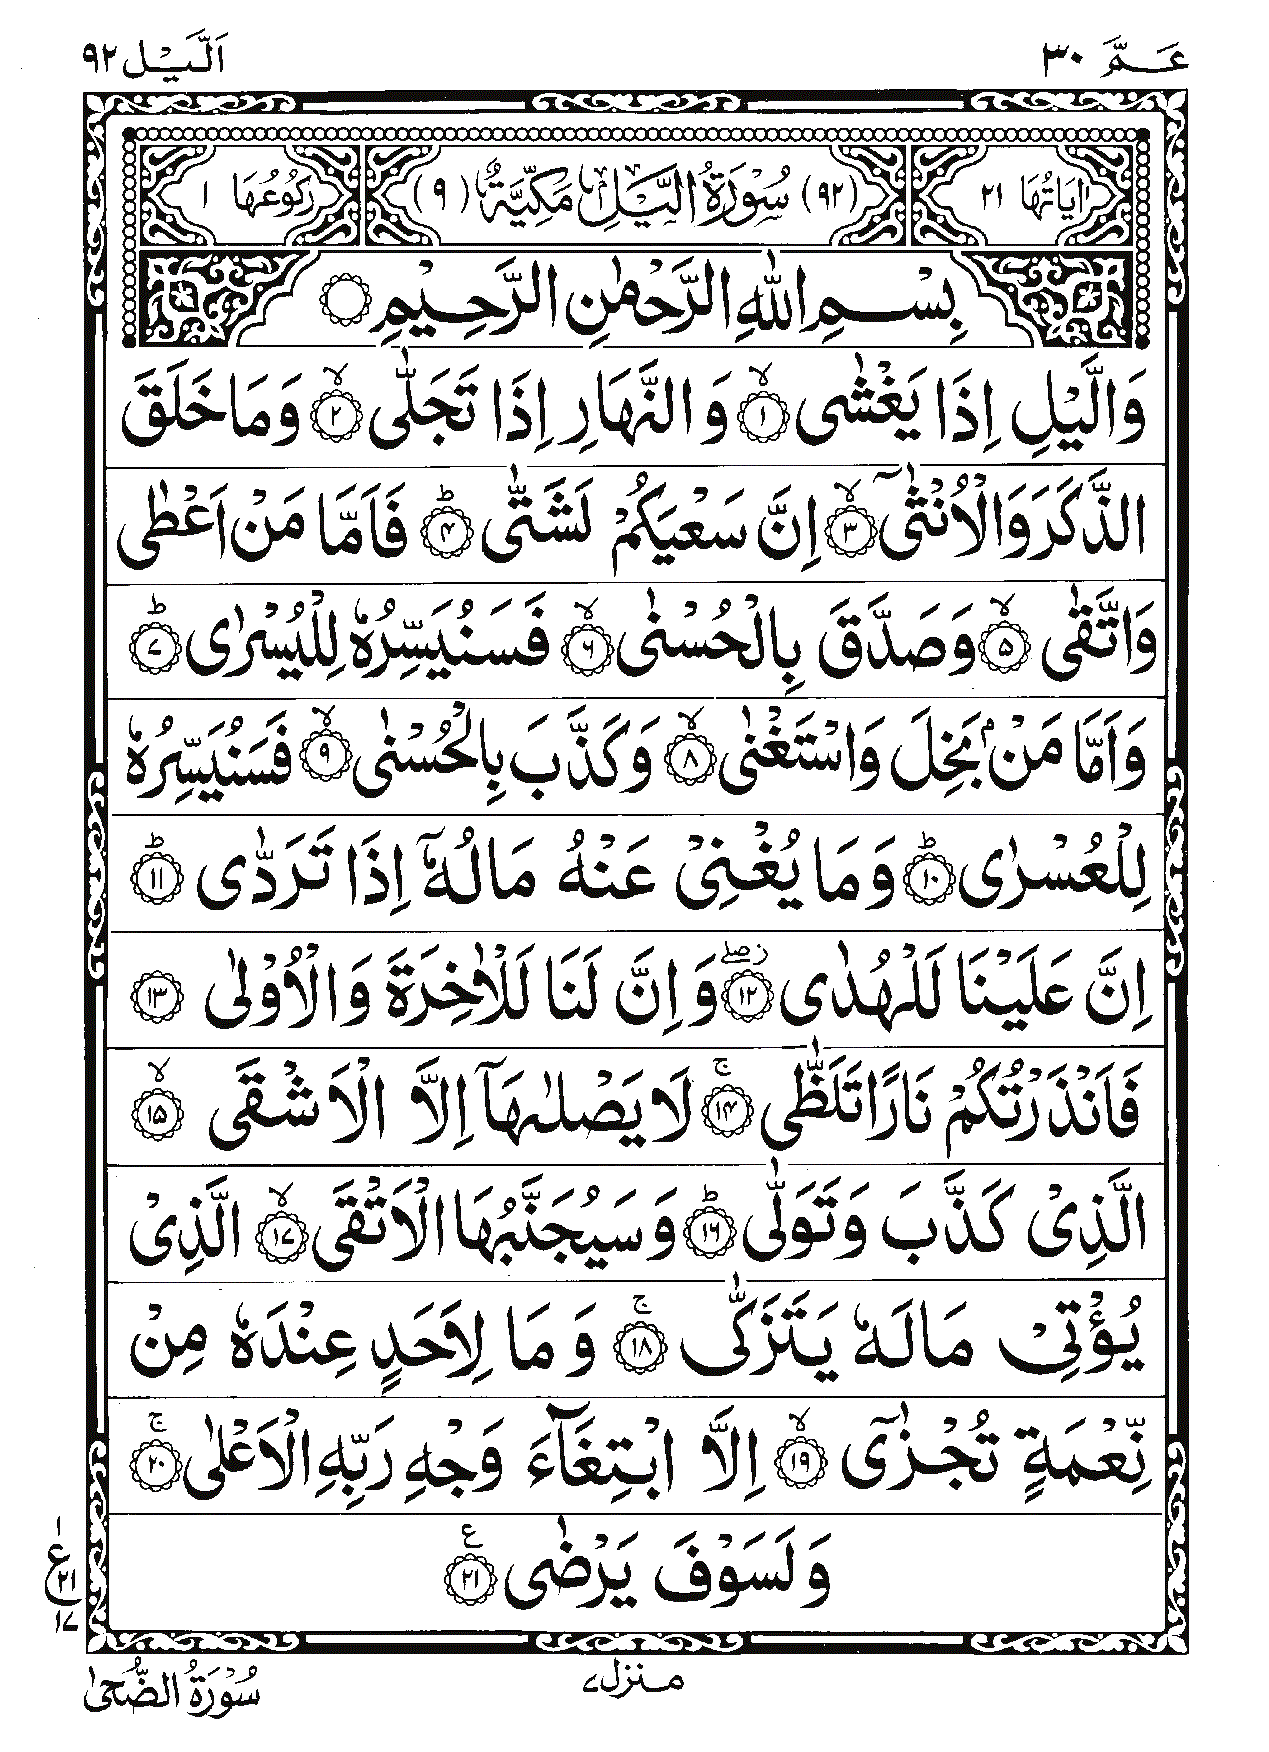 عَـمَّ ٣٠ اَلَّيْـل ٩٢
اٰيَاتُهَا ٢١ (٩٢) سُوْرَةُ الَّيْلِ مَكِّيَّةٌ (٩) رُكُوْعُهَا ١
بِسْمِ اللّٰهِ الرَّحْمٰنِ الرَّحِيْمِ
وَالَّيْلِ اِذَا يَغْشٰى ۙ﴿١﴾ وَالنَّهَارِ اِذَا تَجَلّٰى ۙ﴿٢﴾ وَمَا خَلَقَ
الذَّكَرَ وَالْاُنْثٰٓى ۙ﴿٣﴾ اِنَّ سَعْيَكُمْ لَشَتّٰى ؕ﴿٤﴾ فَاَمَّا مَنْ اَعْطٰى
وَاتَّقٰى ۙ﴿٥﴾ وَصَدَّقَ بِالْحُسْنٰى ۙ﴿٦﴾ فَسَنُيَسِّرُهٗ لِلْيُسْرٰى ؕ﴿٧﴾
وَاَمَّا مَنْۢ بَخِلَ وَاسْتَغْنٰى ۙ﴿٨﴾ وَكَذَّبَ بِالْحُسْنٰى ۙ﴿٩﴾ فَسَنُيَسِّرُهٗ
لِلْعُسْرٰى ؕ﴿١٠﴾ وَمَا يُغْنِىْ عَنْهُ مَالُهٗۤ اِذَا تَرَدّٰى ؕ﴿١١﴾
اِنَّ عَلَيْنَا لَلْهُدٰى ۖ٘﴿١٢﴾ وَاِنَّ لَنَا لَلْاٰخِرَةَ وَالْاُوْلٰى ﴿١٣﴾
فَاَنْذَرْتُكُمْ نَارًا تَلَظّٰى ۚ﴿١٤﴾ لَا يَصْلٰىهَاۤ اِلَّا الْاَشْقَى ۙ﴿١٥﴾
الَّذِىْ كَذَّبَ وَتَوَلّٰى ؕ﴿١٦﴾ وَسَيُجَنَّبُهَا الْاَتْقَى ۙ﴿١٧﴾ الَّذِىْ
يُؤْتِىْ مَالَهٗ يَتَزَكّٰى ۚ﴿١٨﴾ وَمَا لِاَحَدٍ عِنْدَهٗ مِنْ
نِّعْمَةٍ تُجْزٰٓى ۙ﴿١٩﴾ اِلَّا ابْتِغَآءَ وَجْهِ رَبِّهِ الْاَعْلٰى ۚ﴿٢٠﴾
وَلَسَوْفَ يَرْضٰى ﴿٢١﴾ ع
١
ع ٢١
١٧
منزل ٧
سُوْرَةُ الضُّحٰى